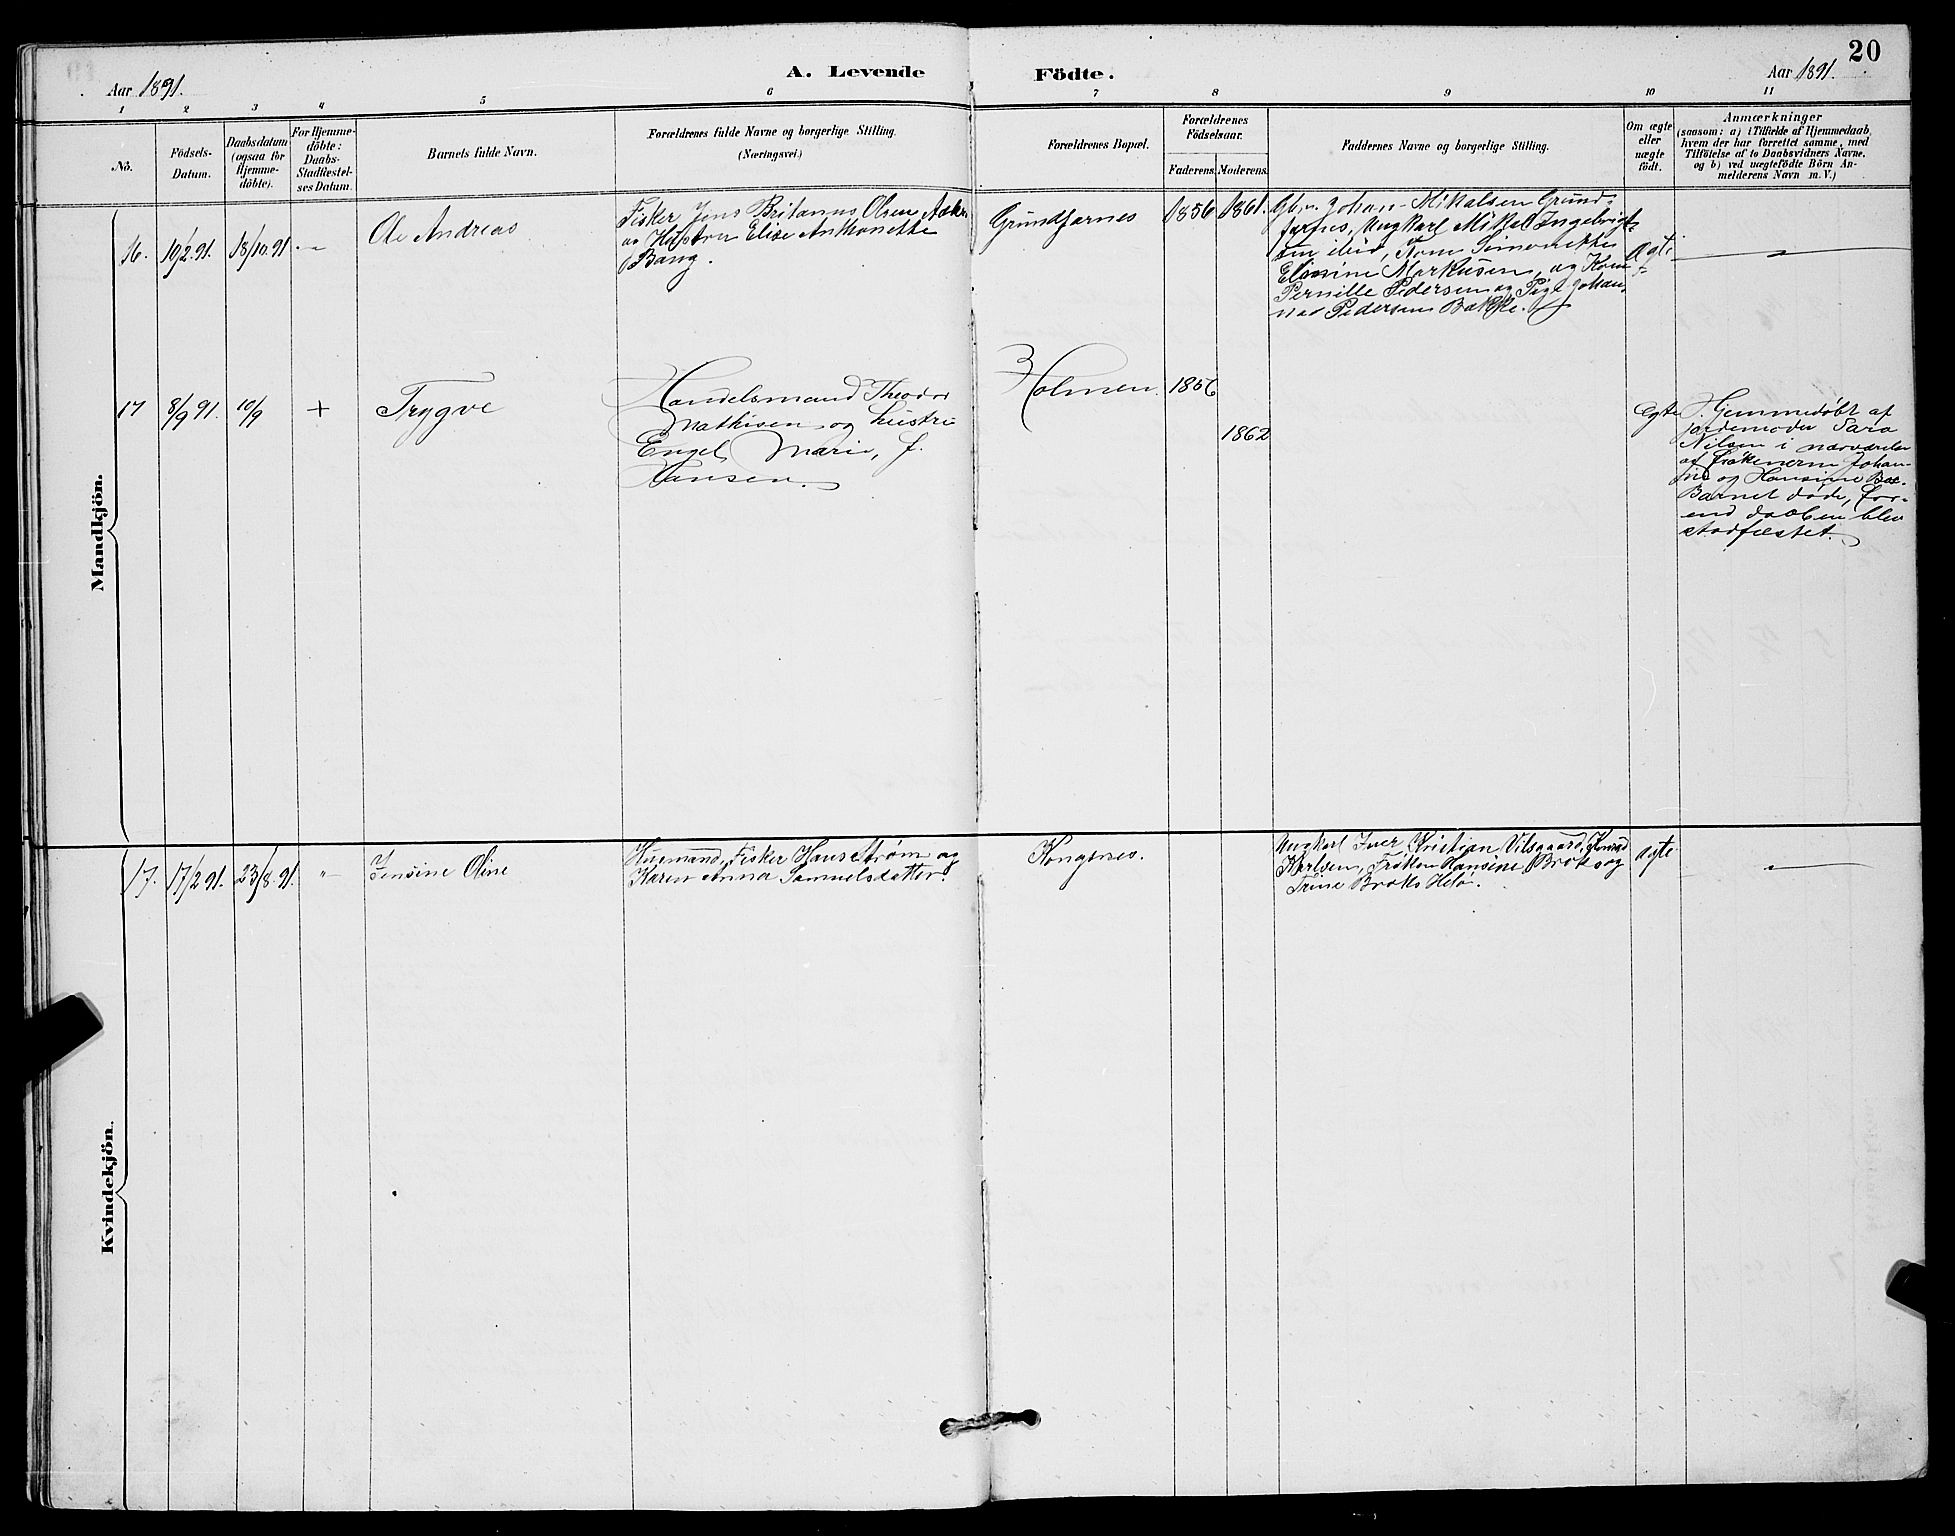 20
A. Levende Födte.
Aar 1891.
Aar 1891.
1 2 3 4 5 6 7 8 9 10 11
No.
Födsels-
Datum.
Daabsdatum
(ogsaa for
Hjemme-
döbte).
For Hjemme-
döbte:
Daabs-
Stadfæstel-
ses Datum.
Barnets fulde Navn.
Forældrenes fulde Navne og borgerlige Stilling.
(Næringsvei.)
Forældrenes Bopæl.
Forældrenes
Födselsaar.
Faderens. Moderens.
Faddernes Navne og borgerlige Stilling.
Om ægte
eller
uægte
födt.
Anmærkninger
(saasom: a) i Tilfælde af Hjemmedaab,
hvem der har forrettet samme, med
Tilföielse af to Daabsvidners Navne,
og b) ved uægtefödte Börn An-
melderens Navn m. V.)
Mandkjön.
16. 10/2 91. 18/10 91. -
Ole Andreas
Fisker Jens Britanus Olsen
og Hustru Elise Anthonette
Bang.
Grundfarnes
1856 1861.
Gbr. Johan Mikalsen Grund-
farnes, Ungkarl Mikal Ingebrigt-
sen ibid, Kone Simonette
Elesine Markusen, og Kone
Pernille Pedersen og Pige Johan-
na Pedersen Bakke.
Ægte
17 8/9 91. 10/9 +
Trygve
Handelsmand Theodor
Mathisen og hustru
Engel Marie, f.
Hansen.
Holmen.
1856
1862
Egte
Hjemmedøbt af
jordemoder Sara
Nilsen i nærværelse
af frøkenerne Johan-
ne og Hansine
Barnet døde, før-
end daaben blev
stadfæstet.
Kvindekjön.
17. 17/2 91. 23/8 91. "
Jensine Oline
Husmand, Fisker Hans Strøm og
Karen Anna Samuelsdatter.
Kongsnes.
Ungkarl Iver Kristian Vilsgaard, Konrad
Karlsen, Frøken Hansine Broks og
Trine Broks Helø.
Ægte